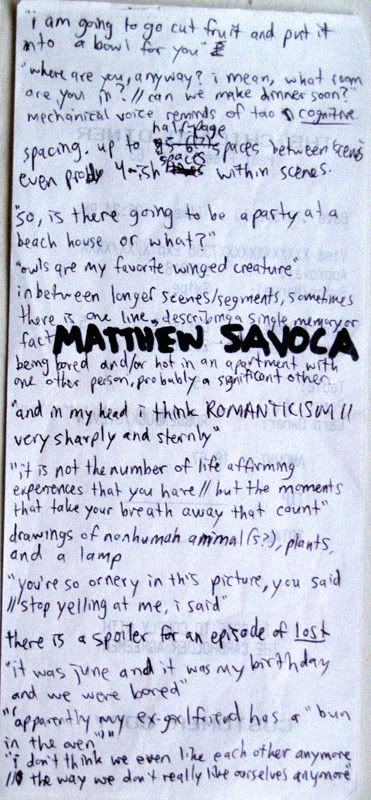 "i am going to go cut fruit and put it
into a bowl for you"
"where are you, anyway? i mean, what room
are you in? // can we make dinner soon?"
mechanical voice reminds of tao cognitive
half-page
spacing. up to spaces between scenes
spaces
even prob 4-ish within scenes.
"so, is there going to be a party at a
beach house or what?"
"owls are my favorite winged creature
inbetween longer scenes/segments, sometimes
there is one line, describing a single memory or
fact MATTHEW SAVOCA
being bored and/or hot in an apartment with
one other person, probably a significant other.
"and in my head i think ROMANTICISM //
very sharply and sternly"
"it is not the number of life affirming
experiences that you have // but the moments
that take your breath away that count"
drawings of nonhuman animal(s?), plants,
and a lamp
"you're so ornery in this picture, you said
// stop yelling at me, i said"
there is a spoiler for an episode of Lost
"it was june and it was my birthday
and we were bored"
"apparently my ex-girlfriend has a "bun
in the oven""
"i don't think we even like each other anymore
// the way we don't really like ourselves anymore"